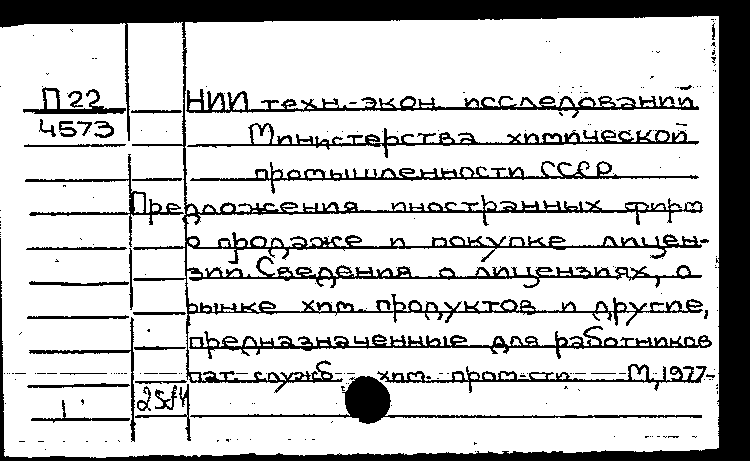 П 22
4573
НИИ техн.-экон. исследований
Министерства химической
промышленности СССР.
Предложения иностранных фирм
о продаже и покупке лицен-
зий. Сведения о лицензиях, о
рынке хим. продуктов и другие,
предназначенные для работников
пат. служб хим. пром-сти. М, 1977-
1